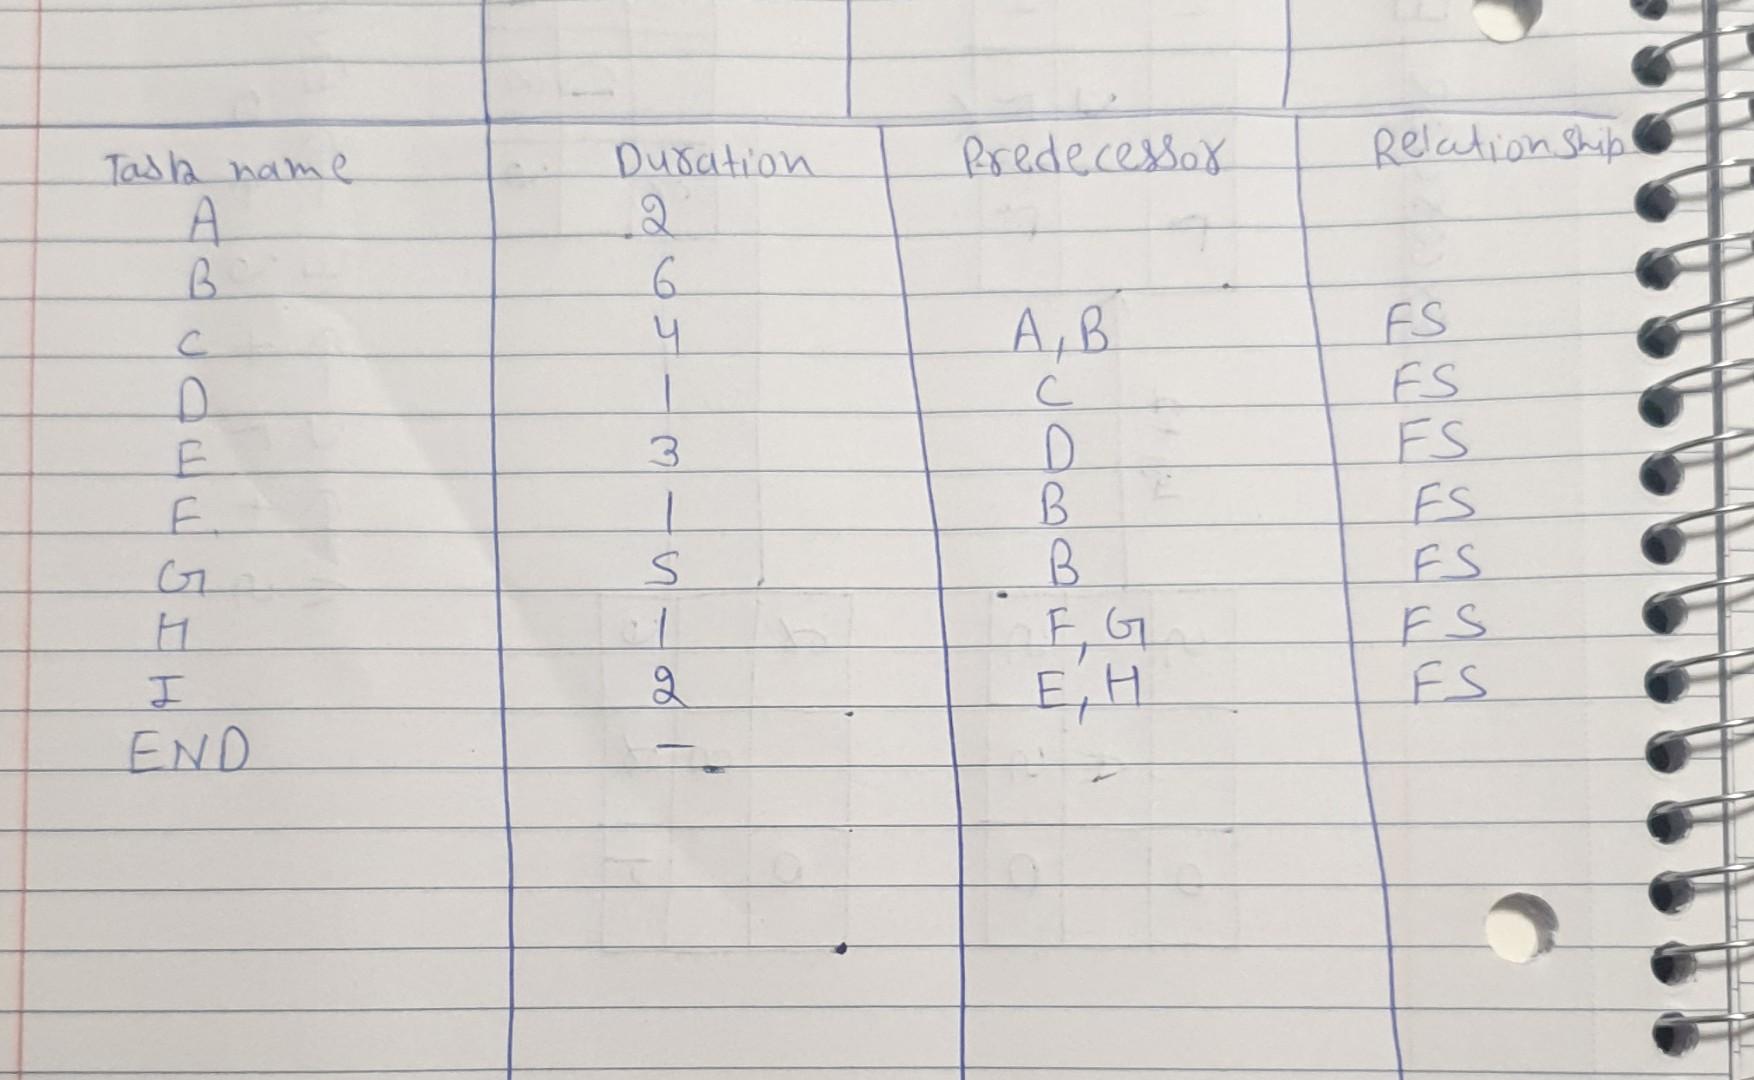 Task name Duration Predecessor Relationship
A 2
B 6
C 4 A, B FS
D 1 C FS
E 3 D FS
F 1 B FS
G 5 B FS
H 1 F, G FS
I 2 E, H FS
END –